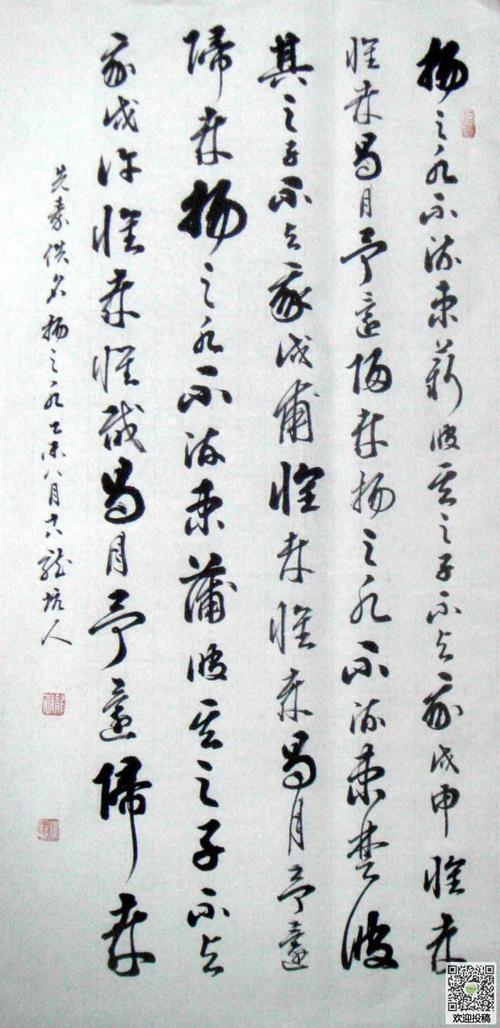 揚之水不流束薪彼其之子不与我戍申懷哉
懷哉曷月予還歸哉揚之水不流束楚彼
其之子不与我戍甫懷哉懷哉曷月予還
歸哉揚之水不流束蒲彼其之子不与
我戍许懷哉懷哉曷月予還歸哉
先秦佚名揚之水乙未八月十八龍坑人
欢迎投稿